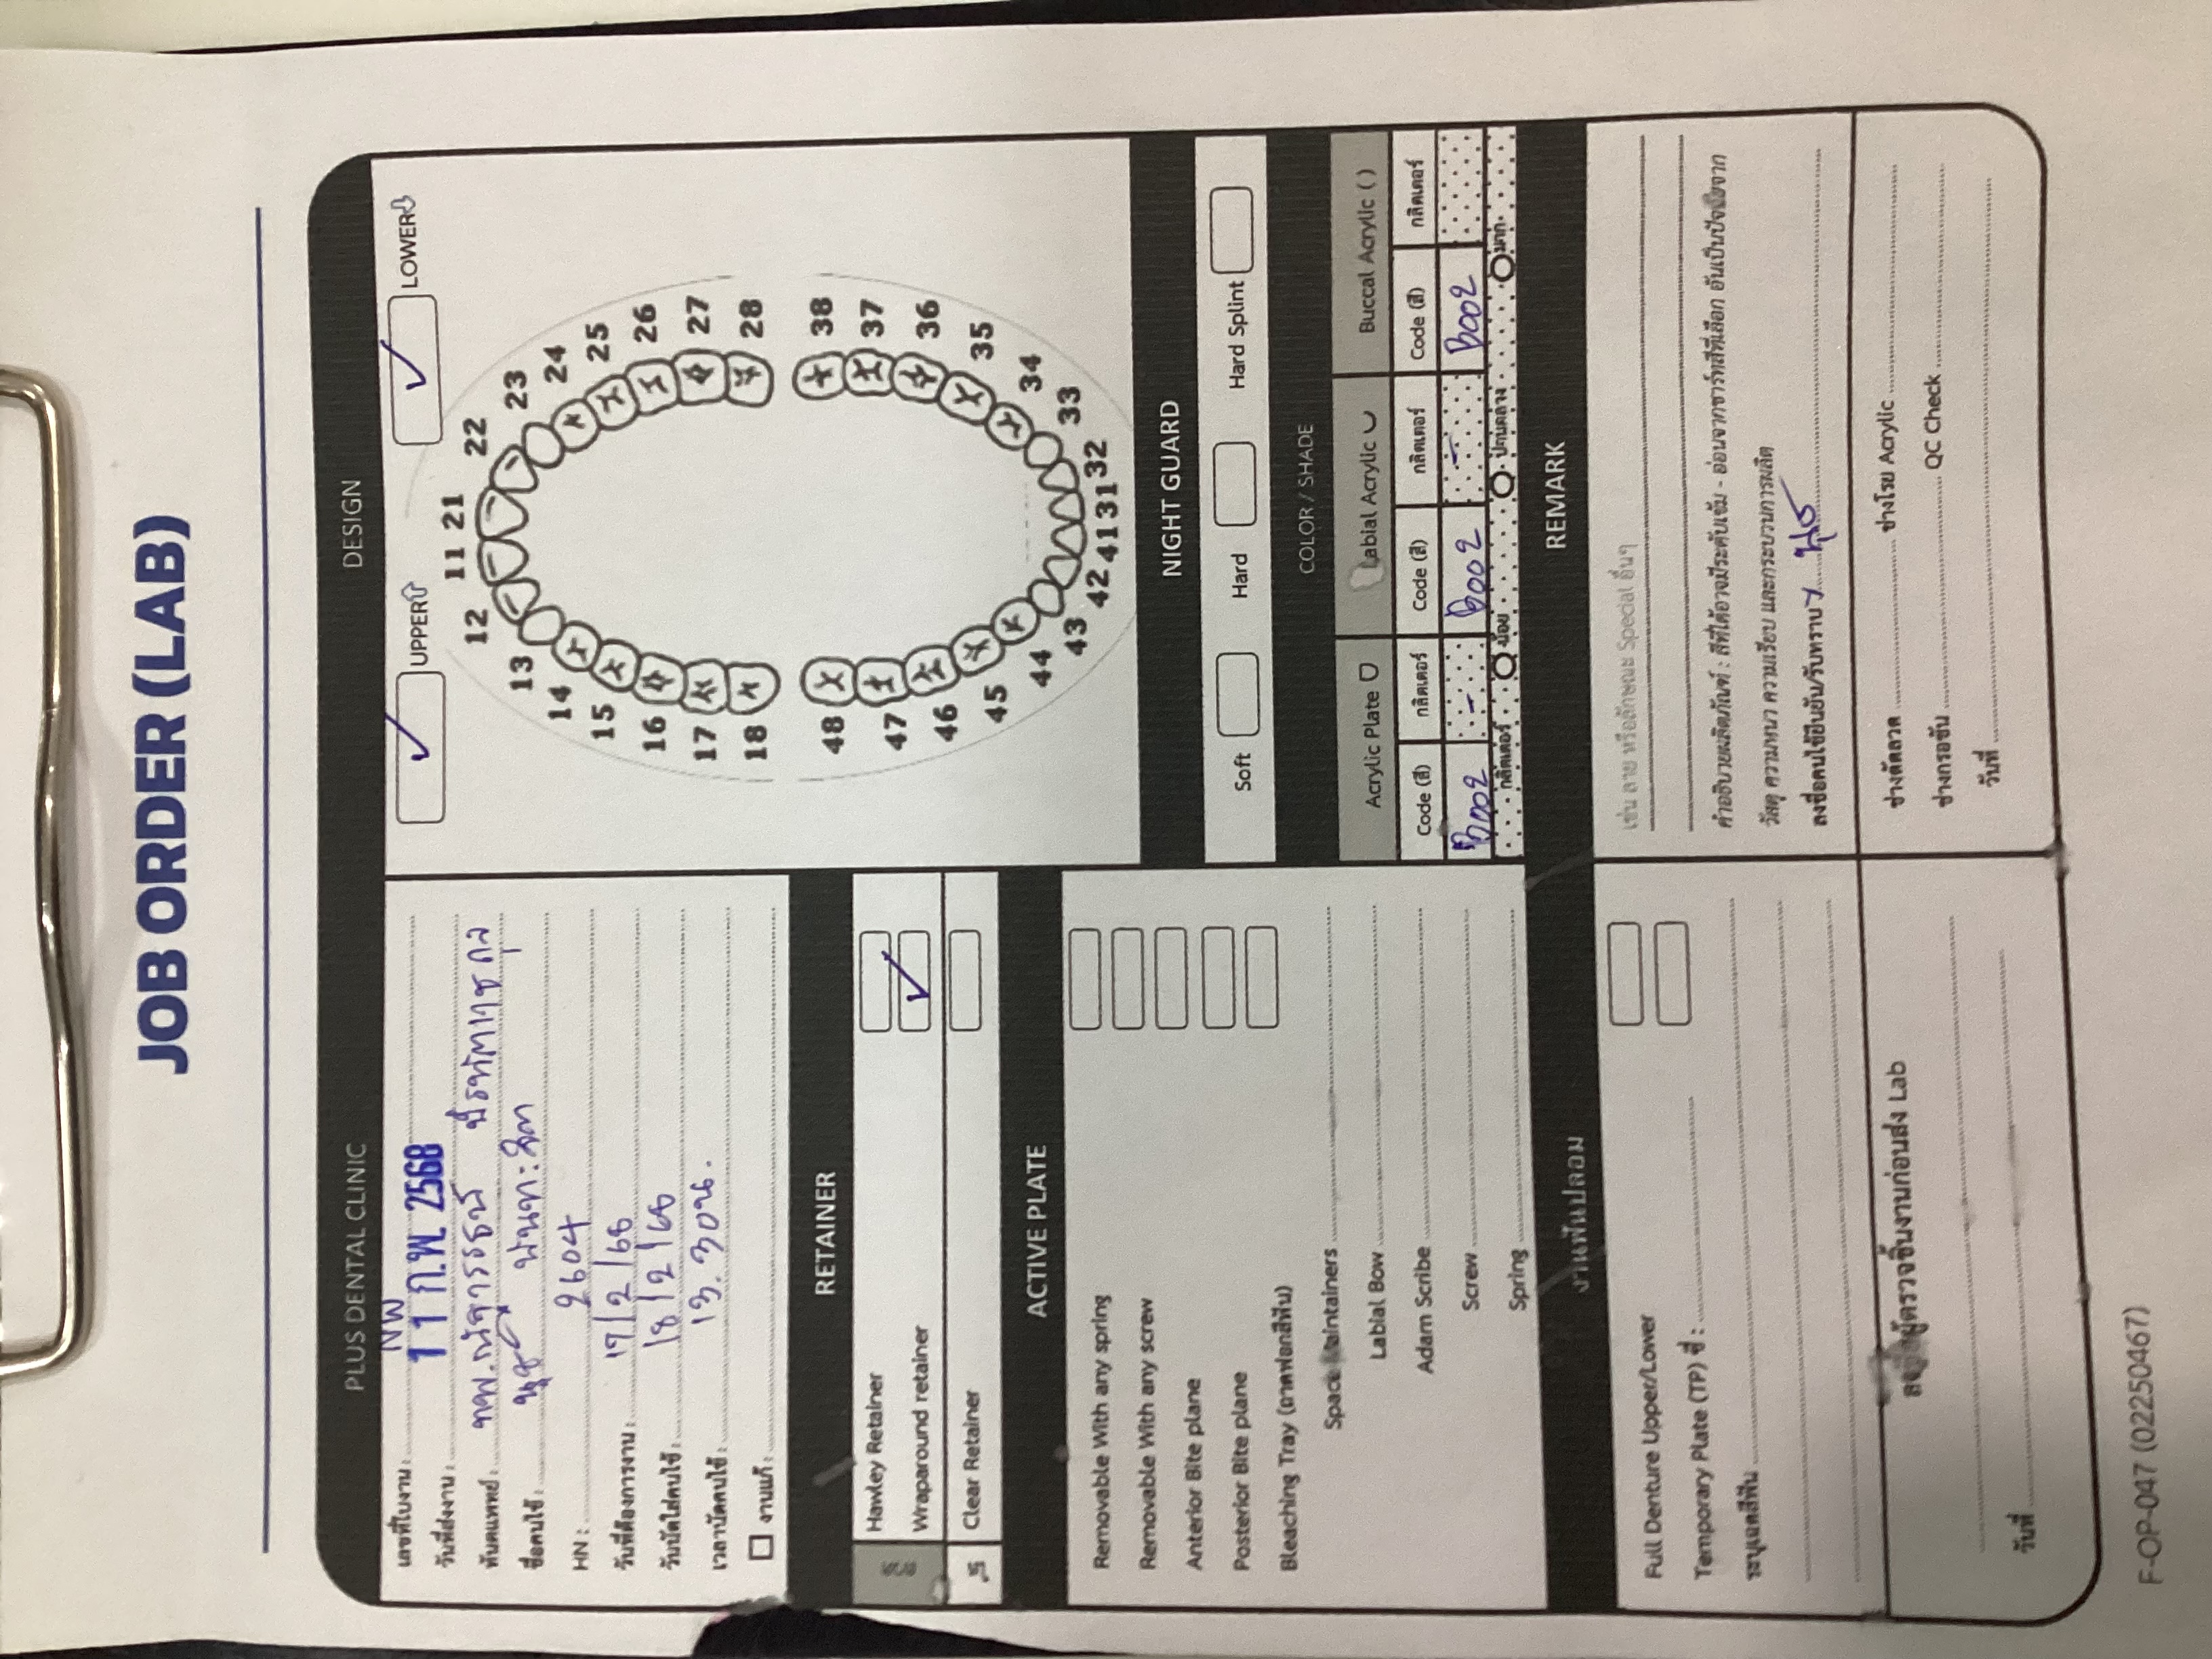 JOB ORDER (LAB)
PLUS DENTAL CLINIC
เลขที่ใบงาน : NW
วันที่ส่งงาน : 11 ก.พ. 2568
ทันตแพทย์ : ทพ.ณัฐ
ชื่อคนไข้ : นุช
HN : 2604
วันที่ต้องการงาน : 17/2/68
วันนัดใส่คนไข้ : 18/2/68
เวลานัดคนไข้ : 13.30น.
งานแก้ :
RETAINER
ลวด
Hawley Retainer
Wraparound retainer
ใส
Clear Retainer
ACTIVE PLATE
Removable With any spring
Removable With any screw
Anterior Bite plane
Posterior Bite plane
Bleaching Tray (ถาดฟอกสีฟัน)
Space Maintainers
Labial Bow
Adam Scribe
Screw
Spring
งานฟันปลอม
Full Denture Upper/Lower
Temporary Plate (TP) ซี่ :
ระบุเฉดสีฟัน
ลงชื่อผู้ตรวจชิ้นงานก่อนส่ง Lab
วันที่
DESIGN
UPPER LOWER
11 21
12 22
13 23
14 24
15 25
16 26
17 27
18 28
48 38
47 37
46 36
45 35
44 34
43 33
42 41 31 32
NIGHT GUARD
Soft Hard Hard Splint
COLOR / SHADE
Acrylic Plate Labial Acrylic Buccal Acrylic ( )
Code (สี) กลิตเตอร์ Code (สี) กลิตเตอร์ Code (สี) กลิตเตอร์
B002 - B002 - B002
กลิตเตอร์ น้อย ปานกลาง มาก
REMARK
เช่น ลาย หรือลักษณะ Special อื่นๆ
คำอธิบายผลิตภัณฑ์ : สีที่ได้อาจมีระดับเข้ม - อ่อนจากชาร์ทสีที่เลือก อันเป็นปัจจัยจาก
วัสดุ ความหนา ความเรียบ และกระบวนการผลิต
ลงชื่อคนไข้ยืนยัน/รับทราบ นุช
ช่างดัดลวด ช่างโรย Acrylic
ช่างกรอขัน QC Check
วันที่
F-OP-047 (02250467)